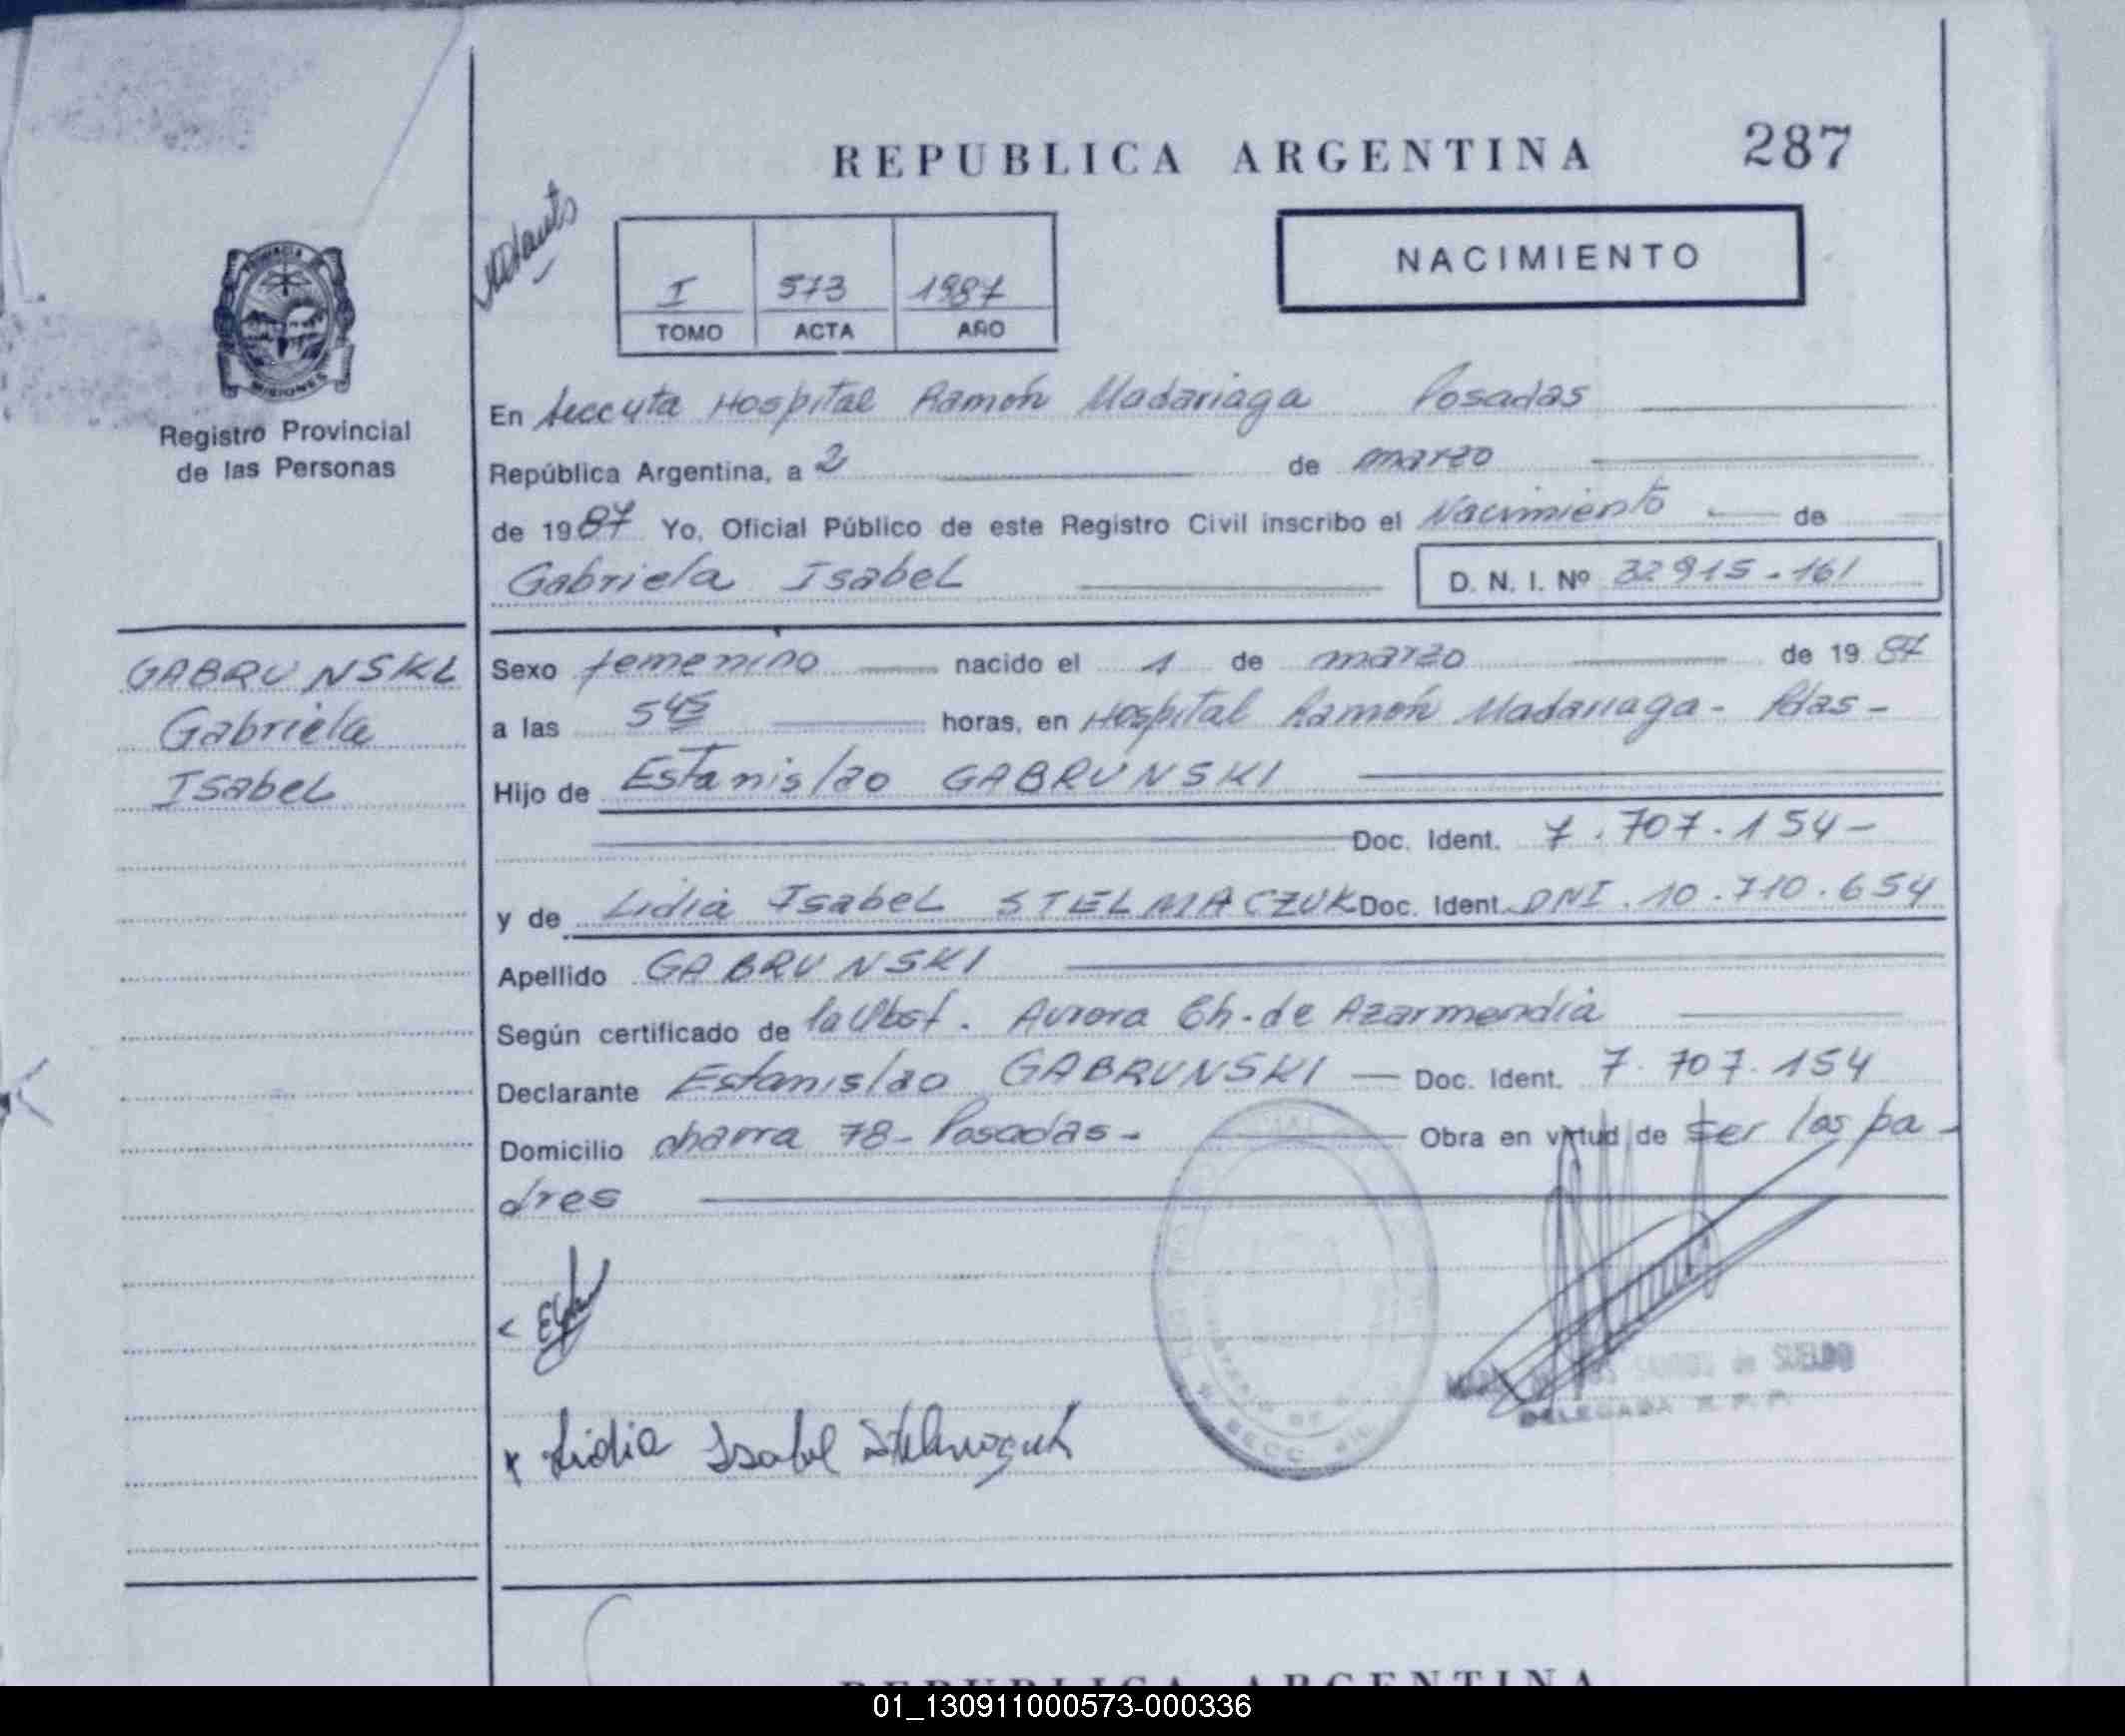 REPUBLICA ARGENTINA 287
NACIMIENTO
I 573 1987
TOMO ACTA AÑO
PROVINCIA
MISIONES
Registro Provincial
de las Personas
En Hospital Ramón Madariaga Posadas
República Argentina, a 2 de marzo
de 1987 Yo, Oficial Público de este Registro Civil inscribo el Nacimiento de
Gabriela Isabel D. N. I. Nº 32915-161
GABRUNSKI
Gabriela
Isabel
Sexo femenino nacido el 1 de marzo de 1987
a las 5 45 horas, en Hospital Ramón Madariaga - Pdas -
Hijo de Estanislao GABRUNSKI
Doc. Ident. 7.707.154-
y de Lidia Isabel STELMACZUK Doc. Ident. DNI. 10.710.654
Apellido GABRUNSKI
Según certificado de la Obst. Aurora Ch. de Azarmendia
Declarante Estanislao GABRUNSKI — Doc. Ident. 7.707.154
Domicilio 78- Posadas- Obra en virtud de ser los pa-
dres
x Lidia Isabel Stelmaczuk
de SUELDO
DELEGADA R. P. P.
REPUBLICA ARGENTINA
01_130911000573-000336